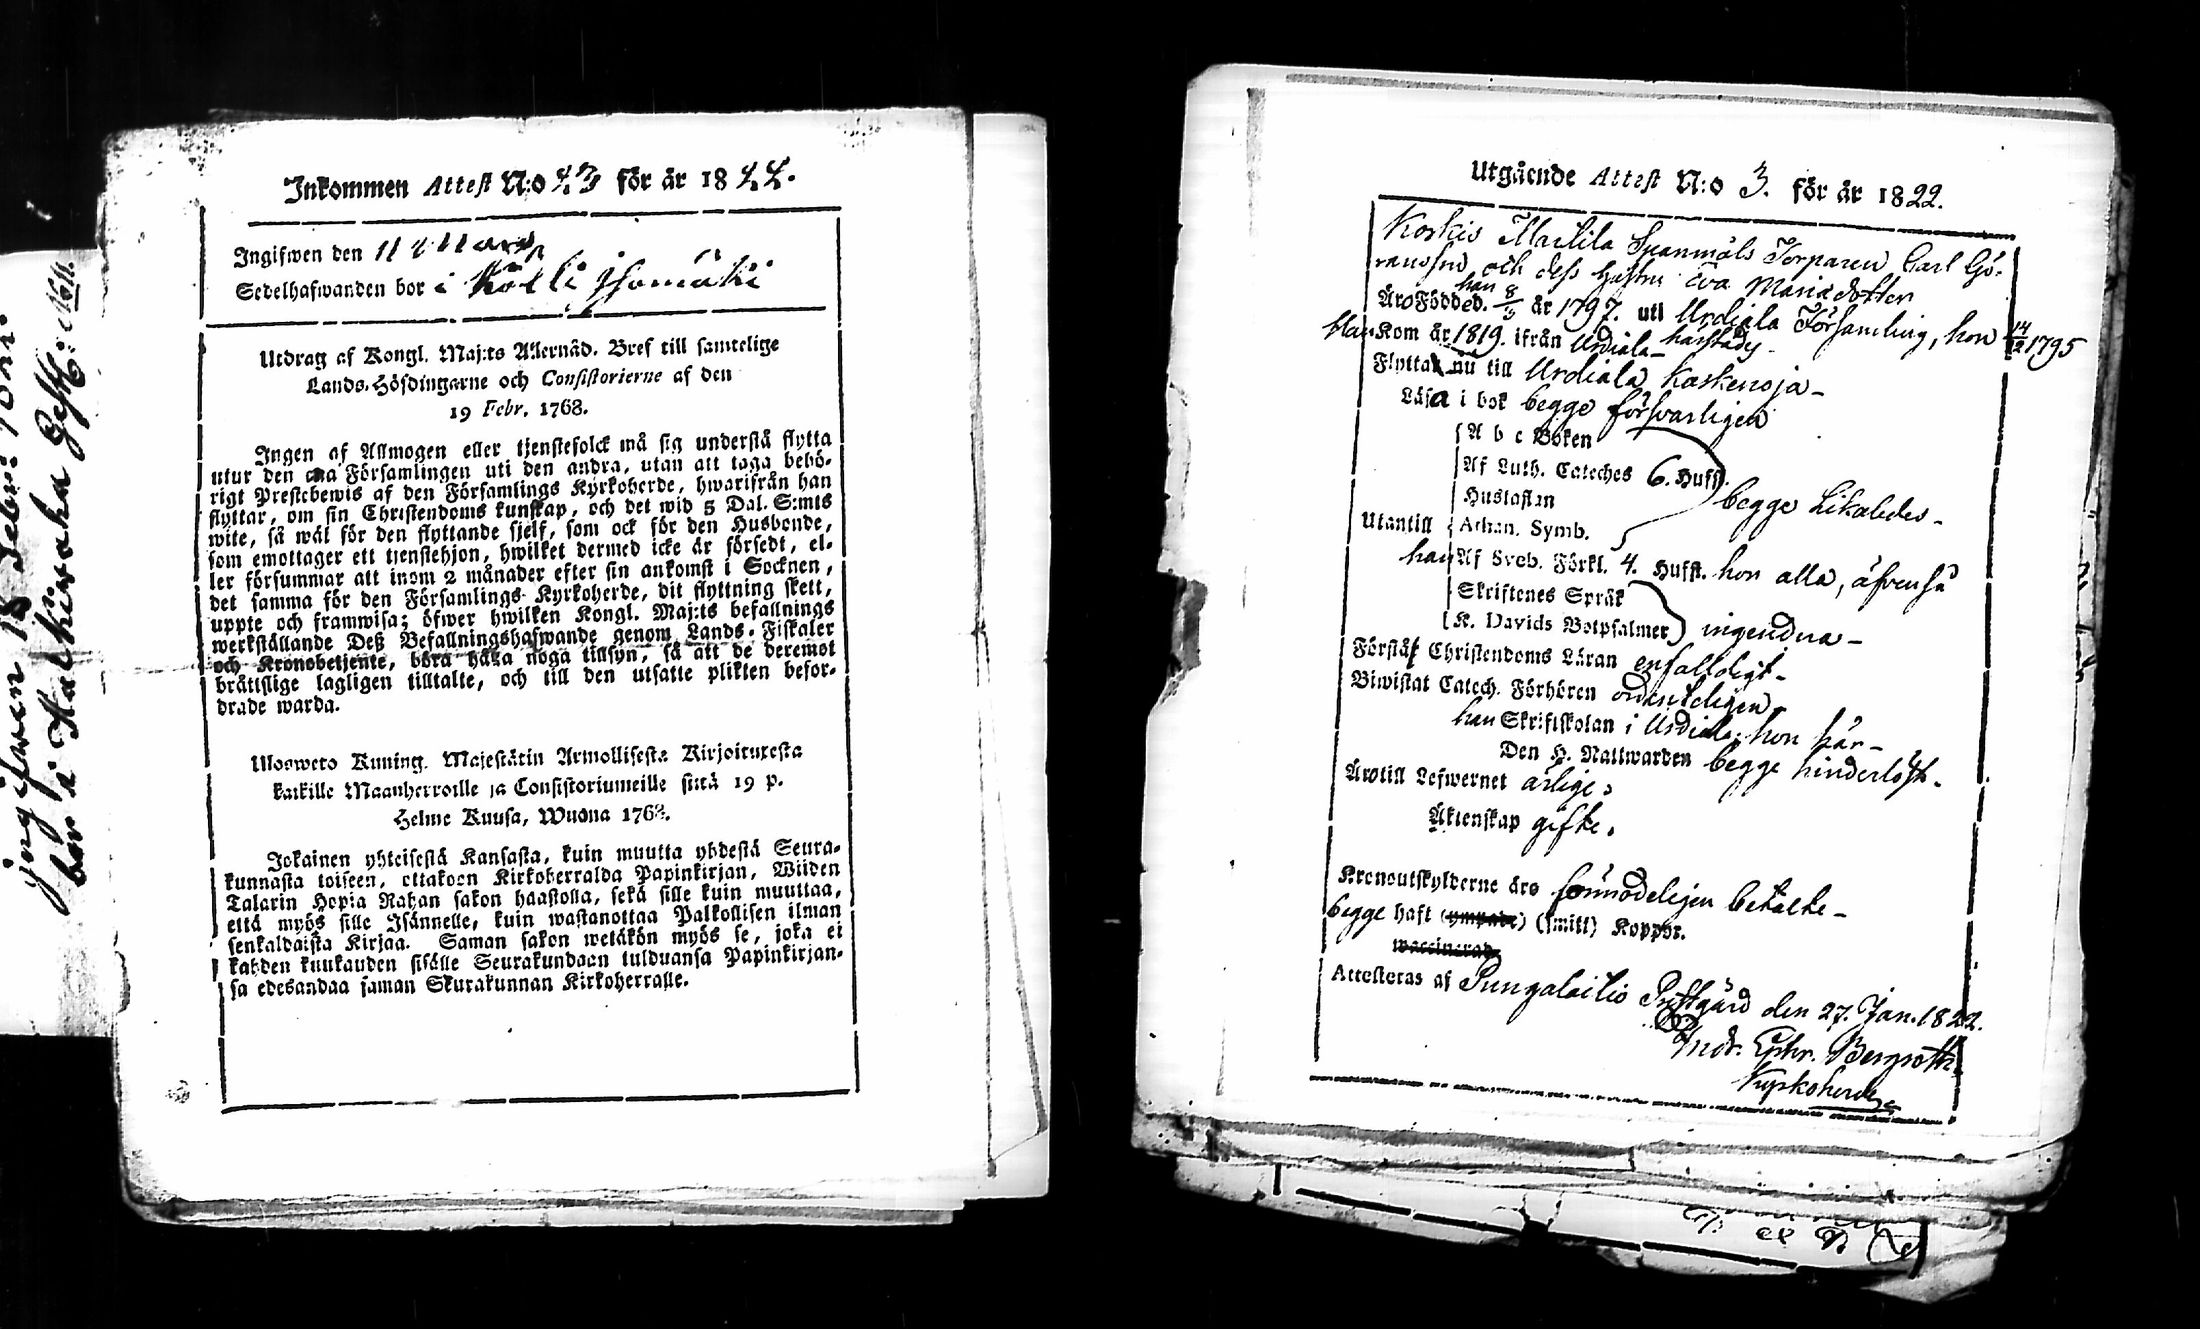 Inkommen Attest N:o 43 för år 1822.
Ingifwen den 11 Mars
Sedelhafwanden bor i Kölli Isomäki
Utdrag af Kongl. Maj:ts Allernåd. Bref till samtelige
Lands-Höfdingarne och Consistorierne af den
19 Febr. 1768.
Ingen af Allmogen eller tjenstefolck må sig understå flytta
utur den ena Församlingen uti den andra, utan att taga behö-
rigt Prestebewis af den Församlings Kyrkoherde, hwarifrån han
flyttar, om sin Christendoms kunskap, och det wid 5 Dal. S:mts
wite, så wäl för den flyttande sjelf, som ock för den Husbonde,
som emottager ett tjenstehjon, hwilket dermed icke är försedt, el-
ler försummar att inom 2 månader efter sin ankomst i Socknen,
det samma för den Församlings Kyrkoherde, dit flyttning skett,
uppte och framwisa; öfwer hwilken Kongl. Maj:ts befallnings
werkställande Deß Befallningshafwande genom Lands-Fiskaler
och Kronobetjente, böra hafwa noga tillsyn, så att de deremot
bråttslige lagligen tilltalte, och till den utsatte plikten befor-
drade warda.
Ulosweto Kuning. Majestätin Armollisesta Kirjoituxesta
kaikille Maanherroille ja Consistoriumeille siitä 19 p.
Helme Kuusa, Wuona 1768.
Jokainen yhteisestä Kansasta, kuin muutta yhdestä Seura-
kunnasta toiseen, ottakoon Kirkoherralda Papinkirjan, Wiiden
Talarin Hopia Rahan sakon haastolla, sekä sille kuin muuttaa,
että myös sille Isännelle, kuin wastanottaa Palkollisen ilman
senkaldaista Kirjaa. Saman sakon wetäkön myös se, joka ei
kahden kuukauden sisälle Seurakundaan tulduansa Papinkirjan-
sa edesandaa saman Seurakunnan Kirkoherralle.
ingifwen 18
bor i
Utgående Attest N:o 3. för år 1822.
Koskis Marttila Spanmåls Torparen Carl Gö-
ransson och dess hustru Eva Mariædotter
han
Äro Födde d. 8/3 år 1797. uti Urdiala Församling, hon 14/12 1795
Kom år 1819. ifrån Urdiala
Flytta nu till Urdiala Kaskenoja -
Läsa i bok begge försvarligen
A b c Boken
Af Luth. Cateches 6. Hufst.
Hustaflan
begge Likaledes -
Utantill
Athan. Symb.
han Af Sveb. Förkl. 4. Hufst. hon alla, äfvenså
Skriftenes Språk
K. Davids Botpsalmer
ingendera -
Förstå Christendoms Läran enfaldigt -
Biwistat Catech. Förhören ordenteligen,
han Skriftskolan i Urdiala, hon här -
Den H. Nattwarden begge hinderlöst -
Äro till Lefwernet ärlige,
Äktenskap gifte,
Kronoutskylderne äro förmodeligen betalte -
begge haft (ympade) (smitt) Koppor.
waccinerad
Attesteras af Pungalaitio Prästgård den 27. Jan. 1822.
And. Ephr. Bergroth.
Kyrkoherde